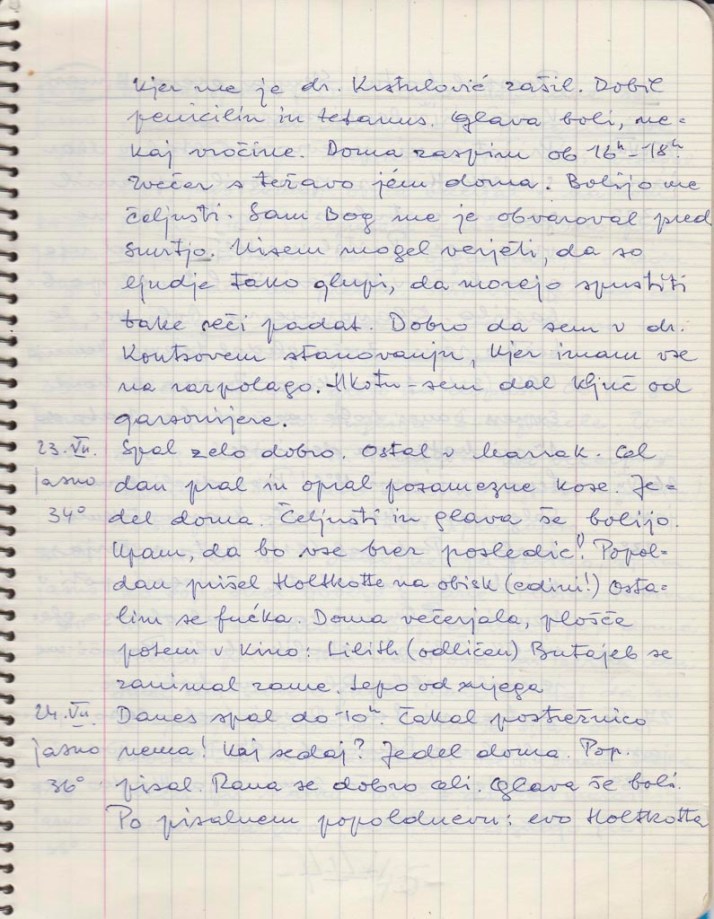 kjer me je dr. Krstulović zašil. Dobil
penicilin in tetanus. Glava boli, ne-
kaj vročine. Doma zaspim ob 16h-18h.
Zvečer s težavo jém doma. Bolijo me
čeljusti. Sam Bog me je obvaroval pred
smrtjo. Nisem mogel verjeti, da so
ljudje tako glupi, da morejo spustiti
take reči padat. Dobro da sem v dr.
Kontzovem stanovanju, kjer imam vse
na razpolago. Hkotu - sem dal ključ od
garsonijere.
23. VII. Spal zelo dobro. Ostal v Marrak. Cel
jasno dan pral in opral posamezne kose. Je-
34° del doma. Čeljusti in glava še bolijo.
Upam, da bo vse brez posledic! Popol-
dan prišel Holtkotte na obisk (edini!) Osta-
lim se fućka. Doma večerjala, plošče
potem v kino: Lilith (odličen) Butajeb se
zanimal zame. Lepo od njega
24. VII. Danes spal do 10h. Čakal postrežnico
jasno nema! Kaj sedaj? Jedel doma. Pop.
36° pisal. Rana se dobro celi. Glava še boli.
Po pisalnem popoldnevu: evo Holtkotta